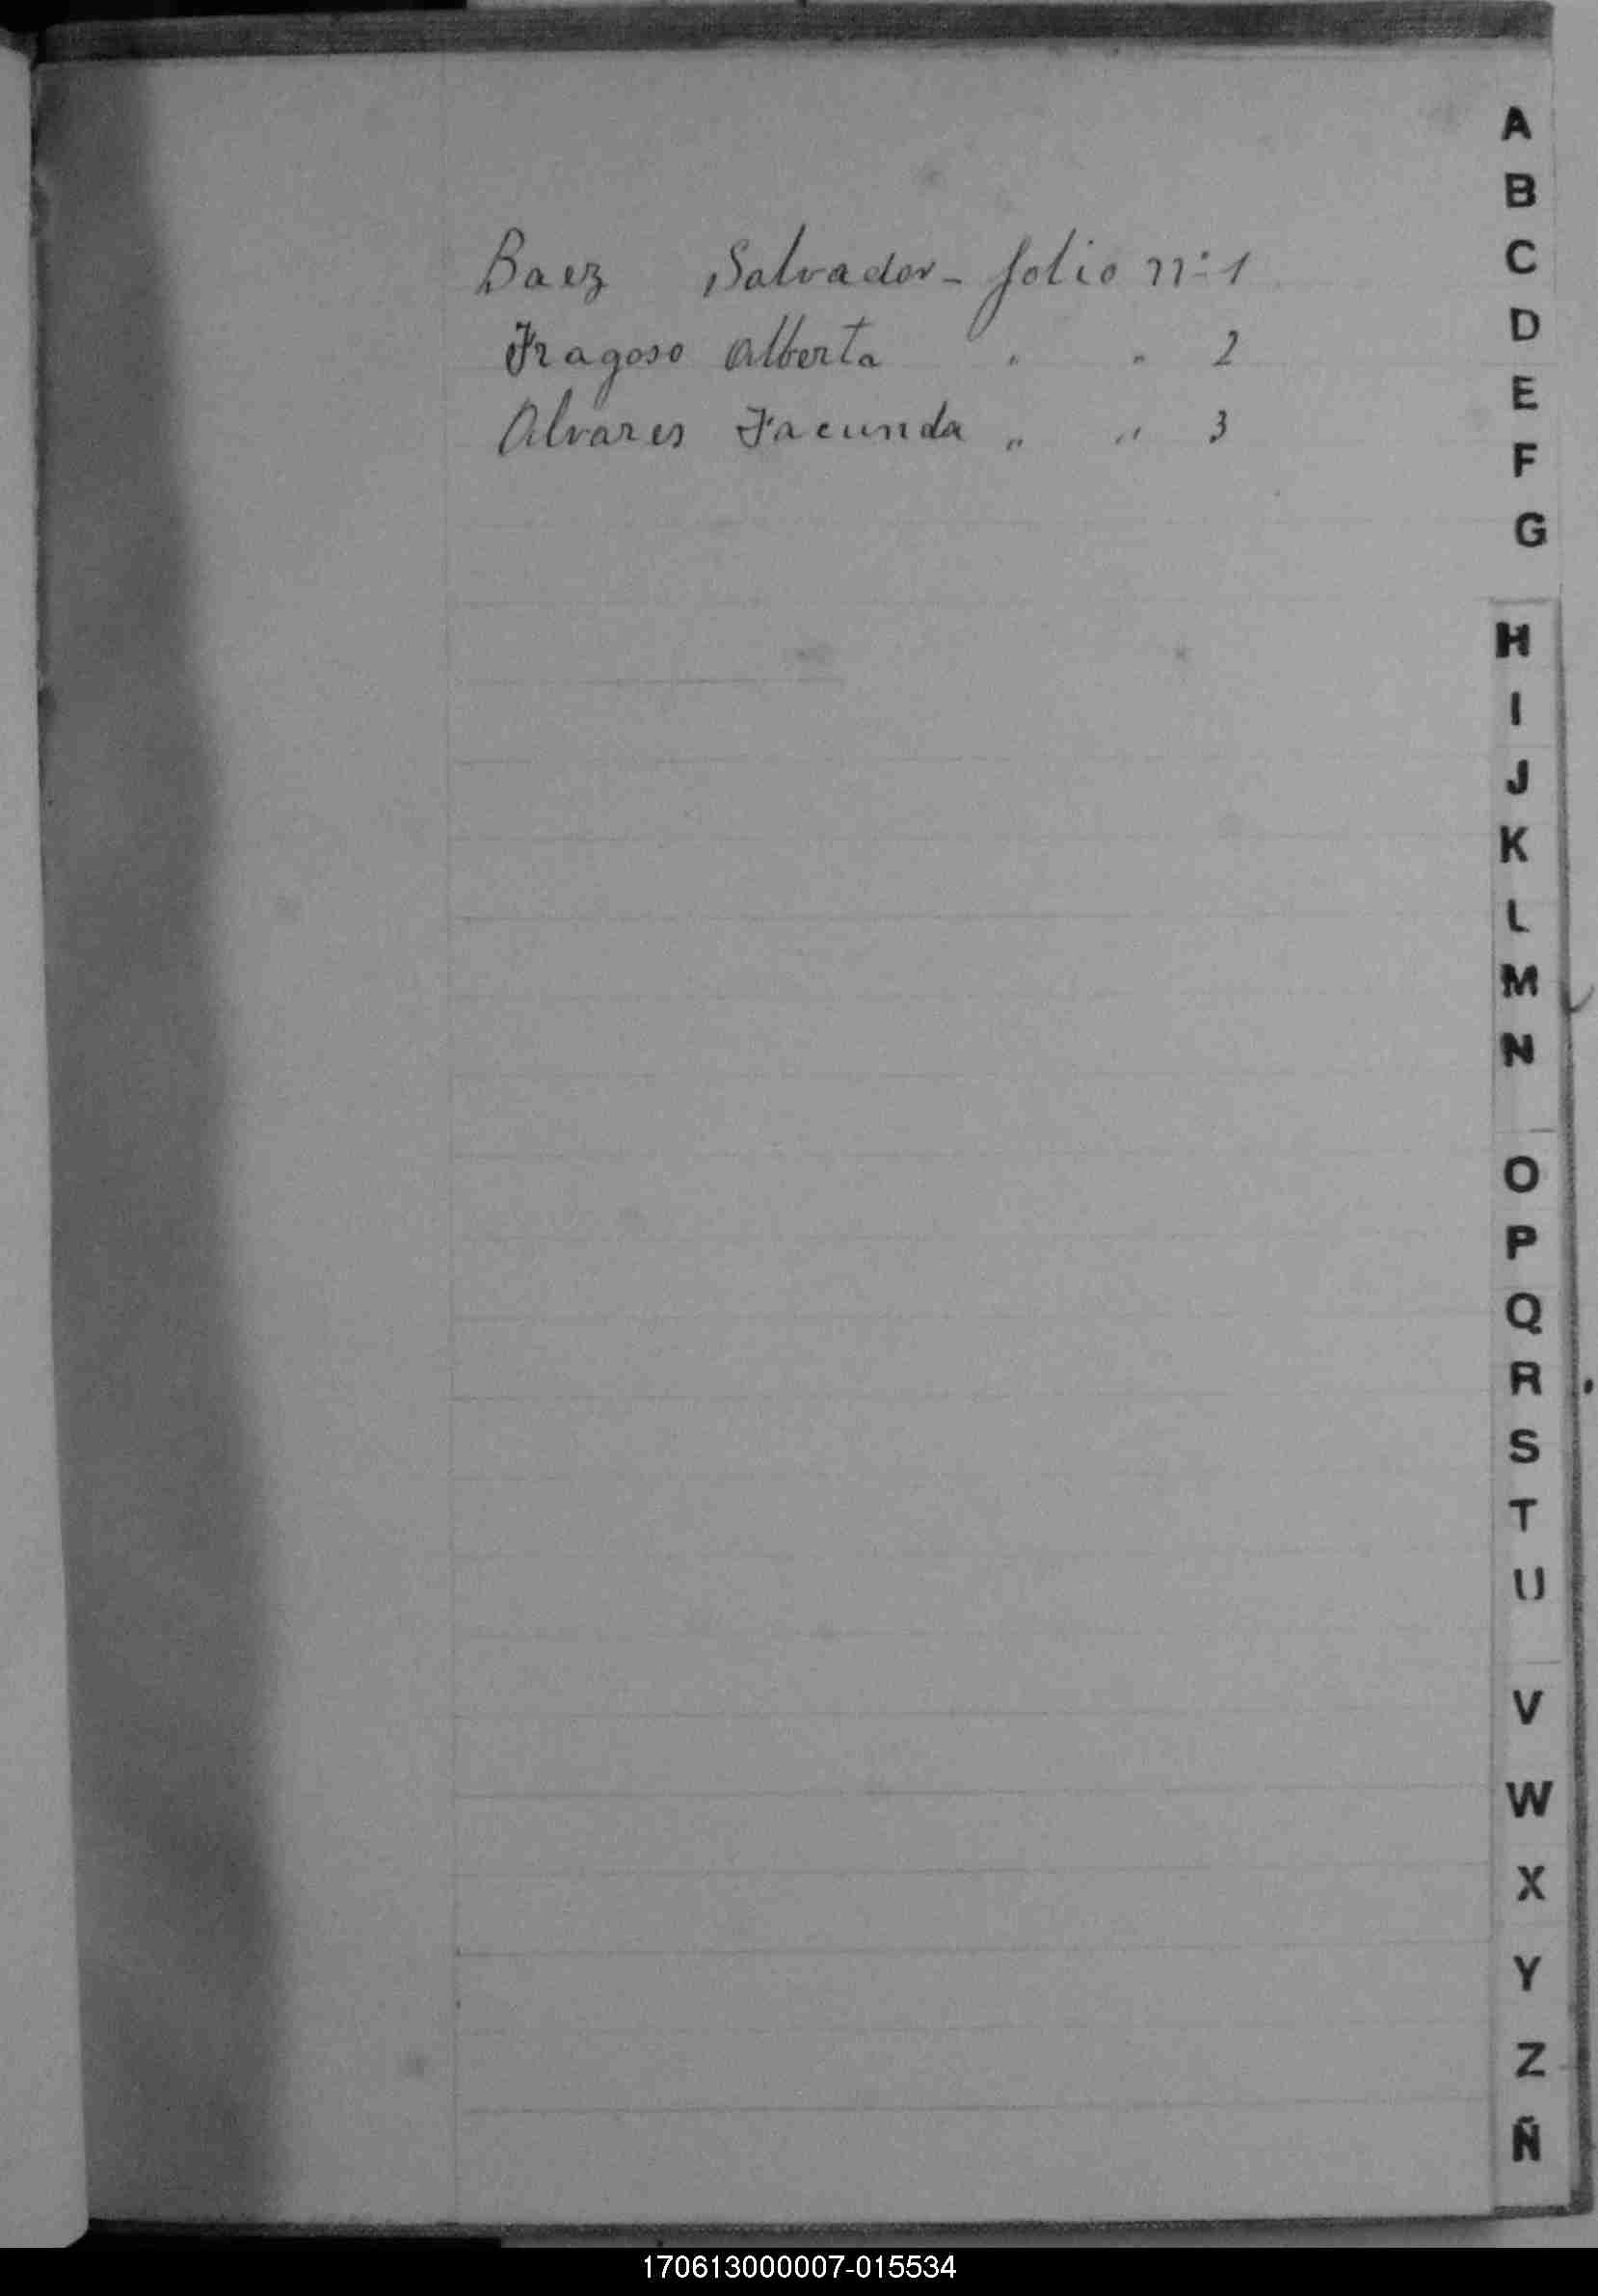 Baez Salvador - folio nº 1
Fragoso Alberta " " 2
Alvares Facunda " " 3
A
B
C
D
E
F
G
H
I
J
K
L
M
N
O
P
Q
R
S
T
U
V
W
X
Y
Z
Ñ
170613000007-015534